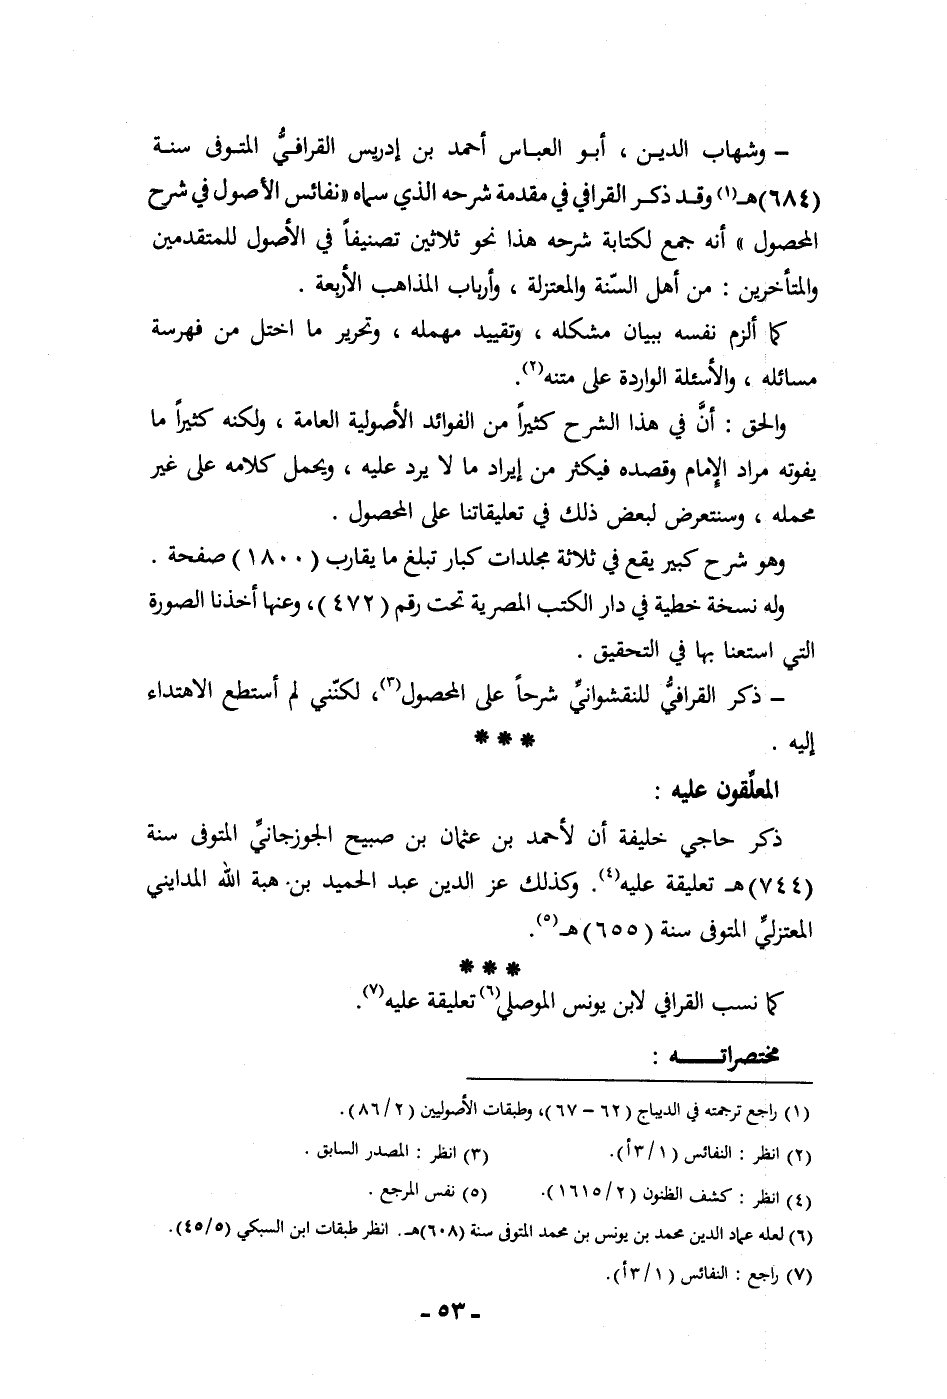 – وشهاب الديـن ، أبـو العبـاس أحمد بن إدريس القرافـيُّ المتـوفى سنـة
(٦٨٤)هـ(١) وقـد ذكـر القرافي في مقدمة شرحه الذي سماه « نفائس الأصول في شرح
المحصول » أنه جمع لكتابة شرحه هذا نحو ثلاثين تصنيفاً في الأصول للمتقدمين
والمتأخرين : من أهل السّنة والمعتزلة ، وأرباب المذاهب الأربعة .
كما ألزم نفسه ببيان مشكله ، وتقييد مهمله ، وتحرير ما اختل من فهرسة
مسائله ، والأسئلة الواردة على متنه(٢).
والحق : أنَّ في هذا الشرح كثيراً من الفوائد الأصولية العامة ، ولكنه كثيراً ما
يفوته مراد الإمام وقصده فيكثر من إيراد ما لا يرد عليه ، ويحمل كلامه على غير
محمله ، وسنتعرض لبعض ذلك في تعليقاتنا على المحصول .
وهو شرح كبير يقع في ثلاثة مجلدات كبار تبلغ ما يقارب (١٨٠٠) صفحة .
وله نسخة خطية في دار الكتب المصرية تحت رقم (٤٧٢)، وعنها أخذنا الصورة
التي استعنا بها في التحقيق .
– ذكر القرافيُّ للنقشوانيِّ شرحاً على المحصول(٣)، لكنّني لم أستطع الاهتداء
إليه .
* * *
المعلِّقون عليه :
ذكر حاجي خليفة أن لأحمد بن عثمان بن صبيح الجوزجانيِّ المتوفى سنة
(٧٤٤)هـ تعليقة عليه(٤). وكذلك عز الدين عبد الحميد بن هبة الله المدايني
المعتزليِّ المتوفى سنة (٦٥٥)هـ(٥).
* * *
كما نسب القرافي لابن يونس الموصلي(٦) تعليقة عليه(٧).
مختصراتـــــه :
(١) راجع ترجمته في الديباج (٦٢ – ٦٧)، وطبقات الأصوليين (٨٦/٢).
(٢) انظر : النفائس (٣/١أ). (٣) انظر : المصدر السابق .
(٤) انظر : كشف الظنون (١٦١٥/٢). (٥) نفس المرجع .
(٦) لعله عماد الدين محمد بن يونس بن محمد المتوفى سنة (٦٠٨)هـ. انظر طبقات ابن السبكي (٤٥/٥).
(٧) راجع : النفائس (٣/١أ).
ـ ٥٣ ـ